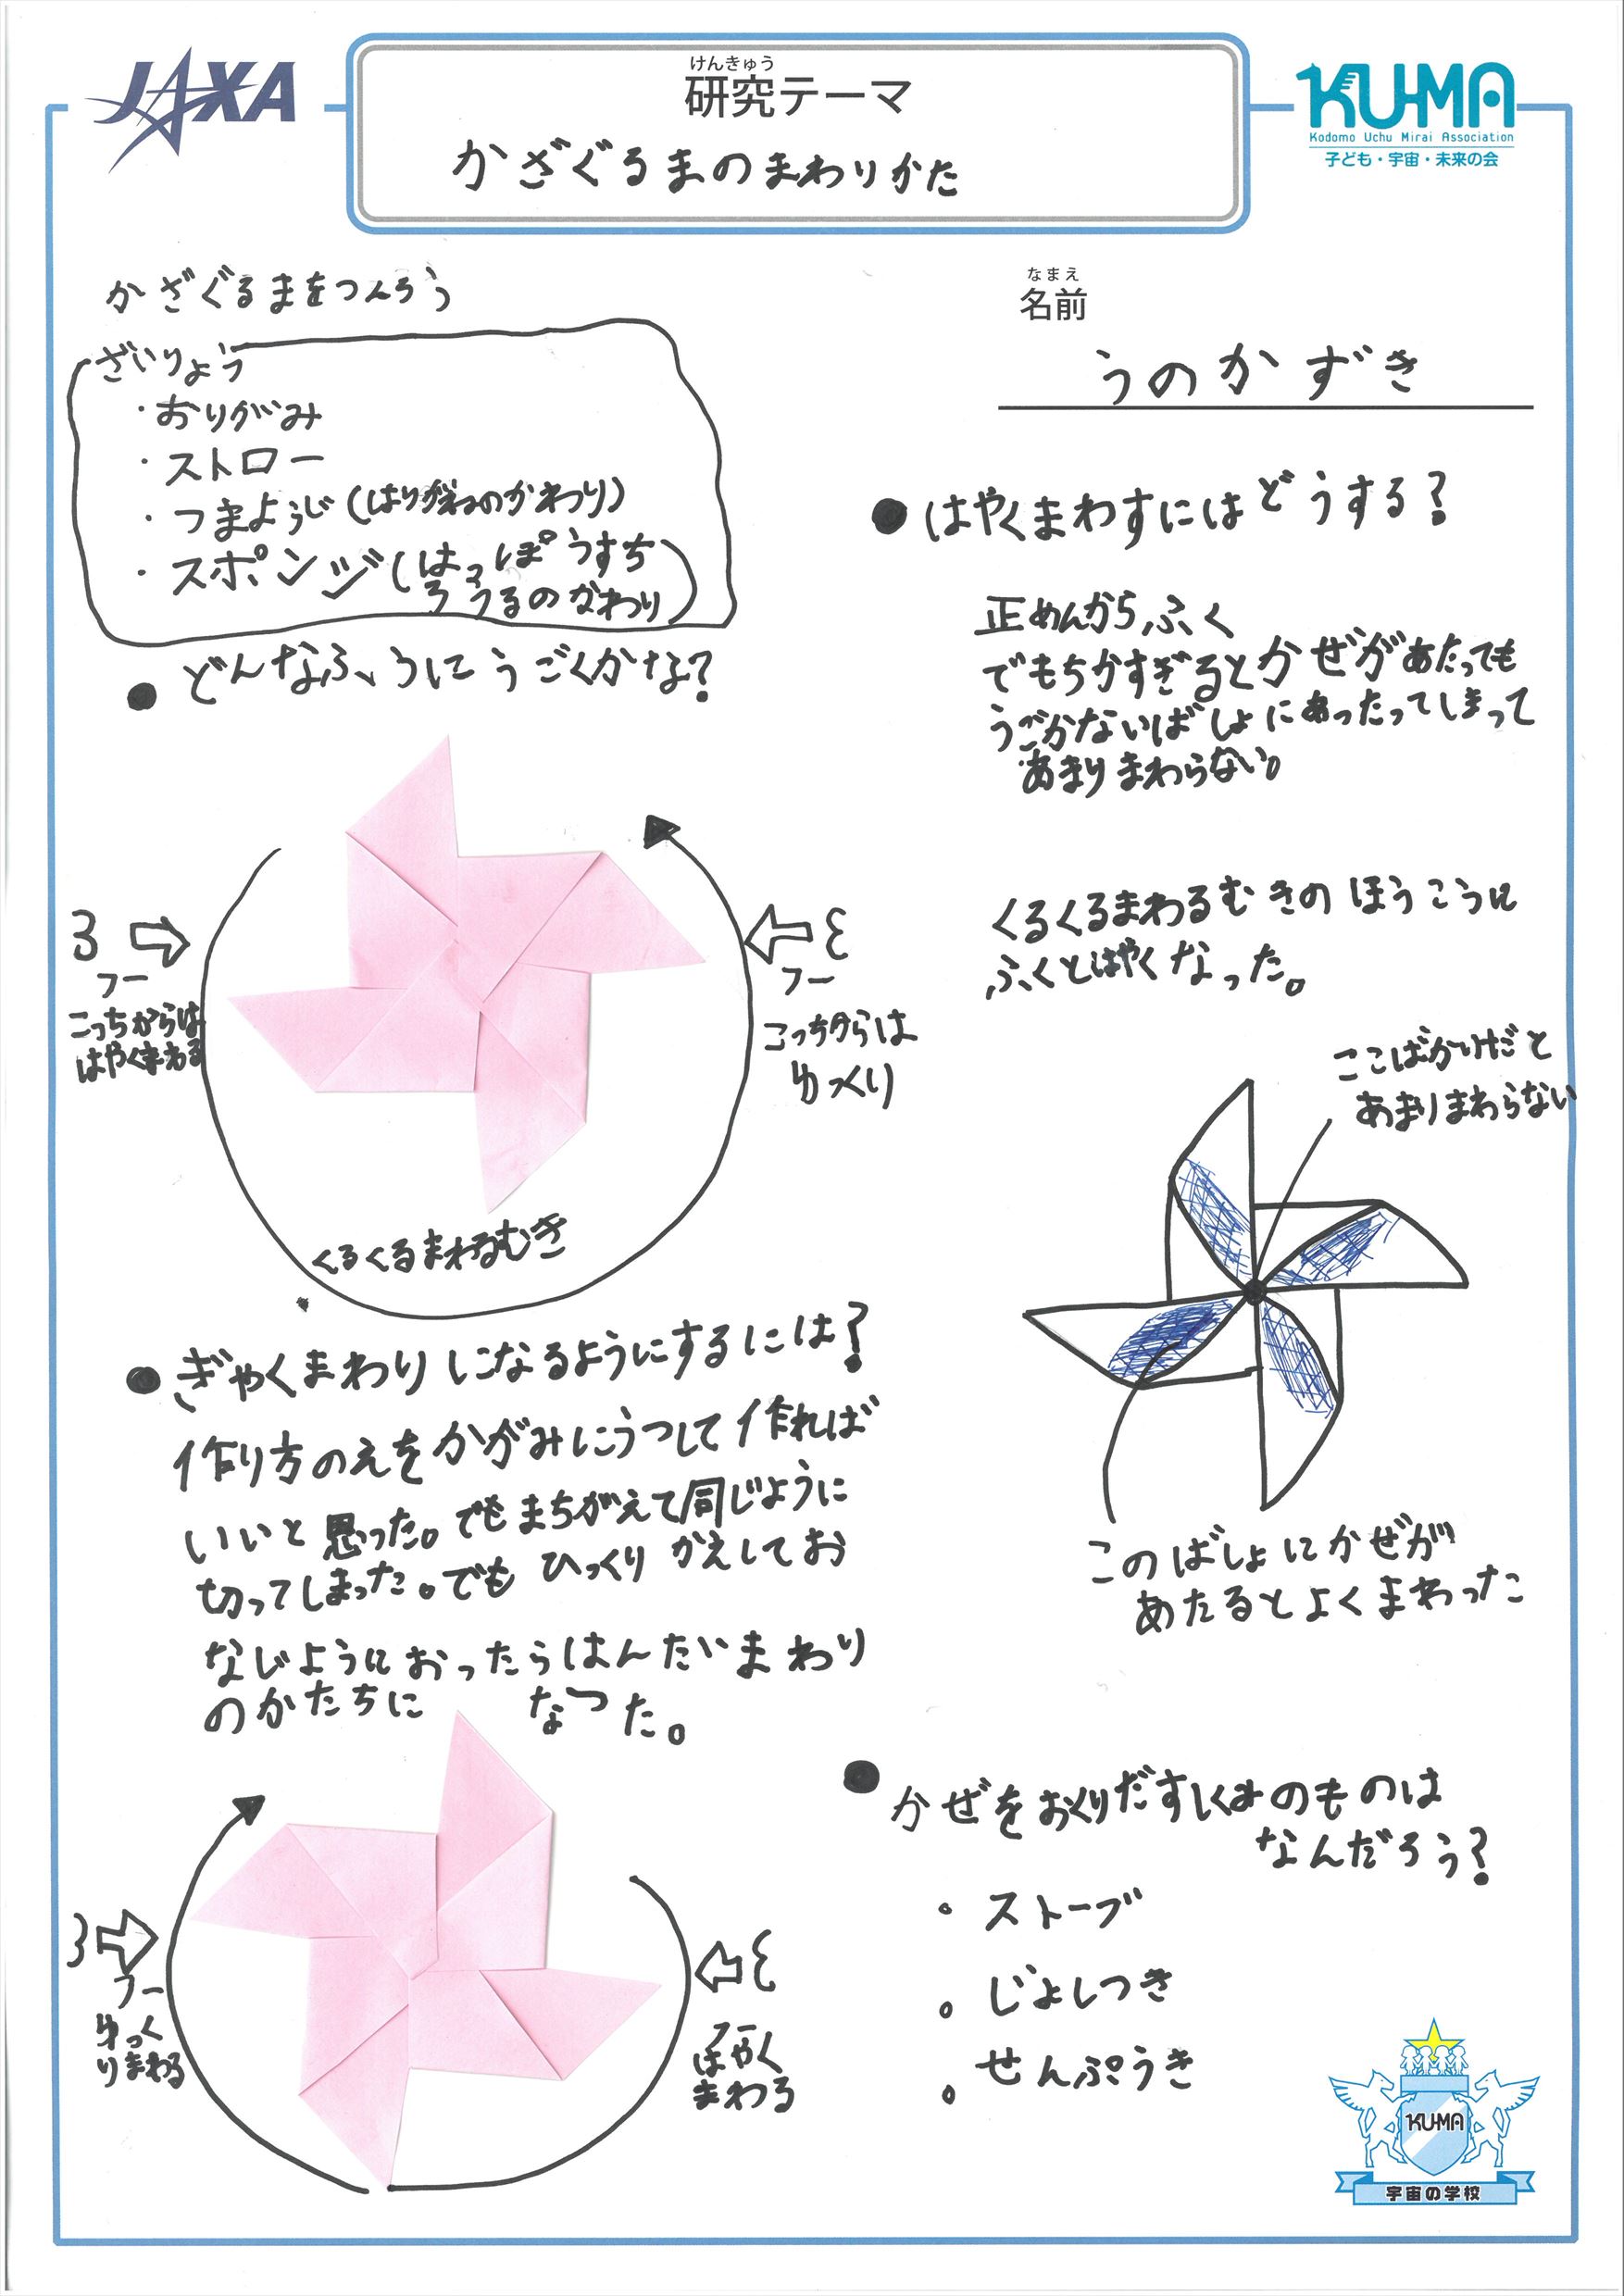 JAXA
けんきゅう
研究テーマ
かざぐるまのまわりかた
KUMA
Kodomo Uchu Mirai Association
子ども・宇宙・未来の会
なまえ
名前
うのかずき
かざぐるまをつくろう
ざいりょう
・おりがみ
・ストロー
・つまようじ(はりがねのかわり)
・スポンジ(はっぽうすち
ろうるのかわり)
●どんなふうにうごくかな?
フー
こっちからは
はやくまわる
フー
こっちからは
ゆっくり
くるくるまわるむき
●ぎゃくまわりになるようにするには?
作り方のえをかがみにうつして作れば
いいと思った。でもまちがえて同じように
切ってしまった。でもひっくりかえしてお
なじようにおったらはんたいまわり
のかたちになった。
フー
ゆっく
りまわる
フー
はやく
まわる
●はやくまわすにはどうする?
正めんからふく
でもちかすぎるとかぜがあたっても
うごかないばしょにあったってしまって
あまりまわらない。
くるくるまわるむきのほうこうに
ふくとはやくなった。
ここばかりだと
あまりまわらない
このばしょにかぜが
あたるとよくまわった
●かぜをおくりだすしくみのものは
なんだろう?
・ストーブ
・じょしつき
・せんぷうき
KUMA
宇宙の学校